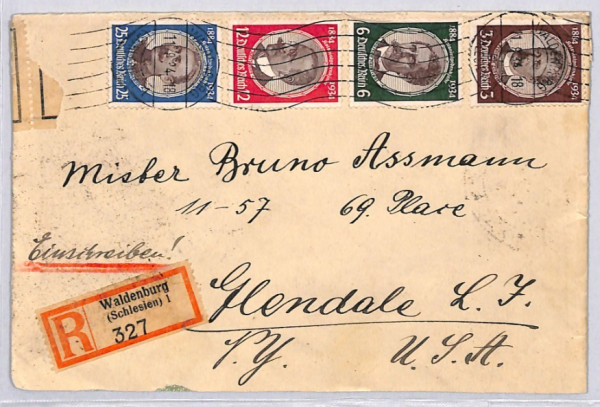 1884 Deutsches Reich 1934 25 25
1884 Deutsches Reich 1934 12 12
1884 Deutsches Reich 1934 6 6
1884 Deutsches Reich 1934 3 3
18
Mister Bruno Assmann
11-57 69. Place
Einschreiben!
Glendale L. I.
N.Y. U.S.A.
R
Waldenburg
(Schlesien) 1
327